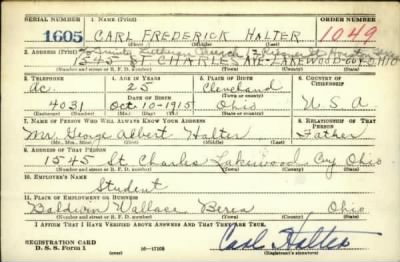 SERIAL NUMBER 1. NAME (Print) ORDER NUMBER
1605 CARL FREDERICK HALTER 1049
(First) (Middle) (Last)
2. ADDRESS (Print)
1545 ST CHARLES AVE-LAKEWOOD OHIO
(Number and street or R. F. D. number) (Town) (County) (State)
3. TELEPHONE 4. AGE IN YEARS 5. PLACE OF BIRTH 6. COUNTRY OF CITIZENSHIP
Ac. 25 Cleveland
DATE OF BIRTH (Town or county)
4031 Oct 10-1915 Ohio U S A
(Exchange) (Number) (Mo.) (Day) (Yr.) (State or country)
7. NAME OF PERSON WHO WILL ALWAYS KNOW YOUR ADDRESS 8. RELATIONSHIP OF THAT PERSON
Mr. George Albert Halter Father
(Mr., Mrs., Miss) (First) (Middle) (Last)
9. ADDRESS OF THAT PERSON
1545 St. Charles Lakewood Cuy Ohio
(Number and street or R. F. D. number) (Town) (County) (State)
10. EMPLOYER'S NAME
Student
11. PLACE OF EMPLOYMENT OR BUSINESS
Baldwin Wallace Berea Ohio
(Number and street or R. F. D. number) (Town) (County) (State)
I AFFIRM THAT I HAVE VERIFIED ABOVE ANSWERS AND THAT THEY ARE TRUE.
REGISTRATION CARD
D. S. S. Form 1 16-17105 Carl Halter
(Registrant's signature)